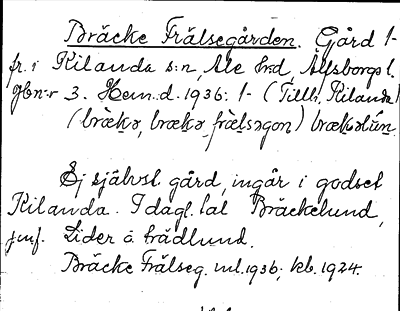 Bräcke Frälsegården. Gård 1-
fr. i Kilanda s:n, Ale hrd, Älfsborgs l.
gbn:r 3. Hem. d. 1936: 1- (Tillh. Kilanda)
(bræk̩ə, bræk̩ə fræl̩səgon) brækəlún.
Ej självst. gård, ingår i godset
Kilanda. I dagl. tal Bräckelund,
jmf. Lider o. Brådlund.
Bräcke Frälseg. ml. 1936; kb. 1924.